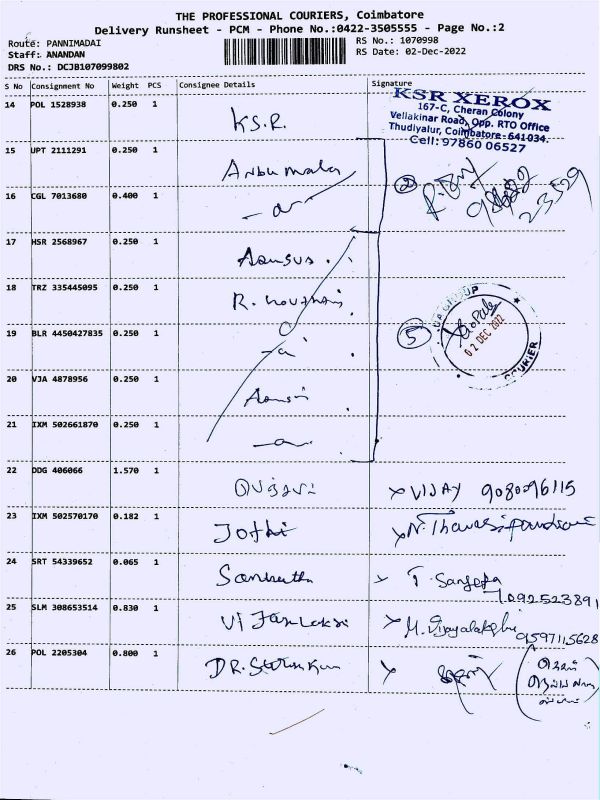 THE PROFESSIONAL COURIERS, Coimbatore
Delivery Runsheet - PCM - Phone No.:0422-3505555 - Page No.:2
Route: PANNIMADAI
RS No.: 1070998
Staff: ANANDAN
RS Date: 02-Dec-2022
DRS No.: DCJB107099802
S No Consignment No Weight PCS Consignee Details Signature
14 POL 1528938 0.250 1 K.S.R.
KSR XEROX
167-C, Cheran Colony
Vellakinar Road, Opp. RTO Office
Thudiyalur, Coimbatore-641034.
Cell: 97860 06527
15 UPT 2111291 0.250 1 Anbu mala
16 CGL 7013680 0.400 1 2
23529
17 HSR 2568967 0.250 1
18 TRZ 335445095 0.250 1 R.
19 BLR 4450427835 0.250 1 5
GROUP
02 DEC 2022
COURIER
20 VJA 4878956 0.250 1
21 IXM 502661870 0.250 1
22 DDG 406066 1.570 1 VIJAY 9080096115
23 IXM 502570170 0.182 1 Jothi N.
24 SRT 54339652 0.065 1 T. Sangeetha
7092523891
25 SLM 308653514 0.830 1 M. Vijayalakshmi
9597115628
26 POL 2205304 0.800 1 DR.